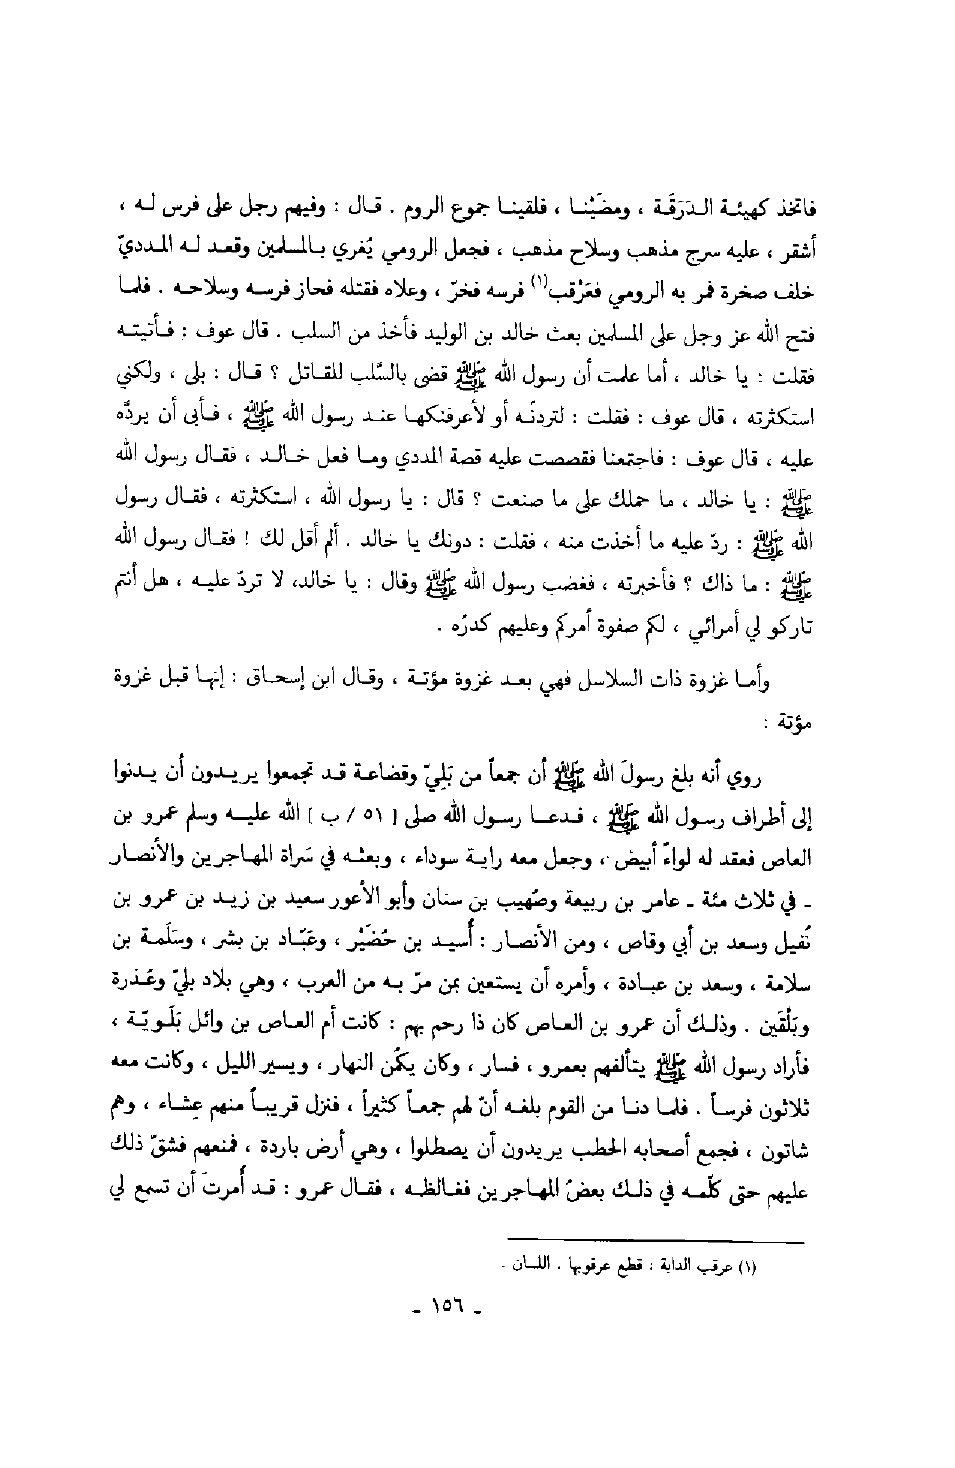 فاتخذ كهيئة الدَرَقَة ، ومضَيْنا ، فلقينا جموع الروم . قال : وفيهم رجل على فرس له ،
أشقر ، عليه سرج مذهب وسلاح مذهب ، فجعل الرومي يُغري بالمسلمين وقعد له المدديّ
خلف صخرة فمر به الرومي فعَرْقب(١) فرسه فخرّ ، وعلاه فقتله فحاز فرسه وسلاحه . فلما
فتح الله عز وجل على المسلمين بعث خالد بن الوليد فأخذ من السلب . قال عوف : فأتيته
فقلت : يا خالد ، أما علمت أن رسول الله ﷺ قضى بالسَّلب للقاتل ؟ قال : بلى ، ولكني
استكثرته ، قال عوف : فقلت : لتردنّه أو لأعرفنكها عند رسول الله ﷺ ، فأبى أن يردّه
عليه ، قال عوف : فاجتمعنا فقصصت عليه قصة المددي وما فعل خالد ، فقال رسول الله
ﷺ : يا خالد ، ما حملك على ما صنعت ؟ قال : يا رسول الله ، استكثرته ، فقال رسول
الله ﷺ : ردّ عليه ما أخذت منه ، فقلت : دونك يا خالد . ألم أقل لك ! فقال رسول الله
ﷺ : ما ذاك ؟ فأخبرته ، فغضب رسول الله ﷺ وقال : يا خالد، لا تردّ عليه ، هل أنتم
تاركو لي أمرائي ، لكم صفوة أمركم وعليهم كدرُه .
وأما غزوة ذات السلاسل فهي بعد غزوة مؤتة ، وقال ابن إسحاق : إنها قبل غزوة
مؤتة :
روي أنه بلغ رسولَ الله ﷺ أن جمعاً من بَلِيّ وقضاعة قد تجمعوا يريدون أن يدنوا
إلى أطراف رسول الله ﷺ ، فدعا رسول الله صلى [ ٥١ / ب ] الله عليه وسلم عمرو بن
العاص فعقد له لواءً أبيض ، وجعل معه راية سوداء ، وبعثه في سَراة المهاجرين والأنصار
- في ثلاث مئة - عامر بن ربيعة وصُهيب بن سنان وأبو الأعور سعيد بن زيد بن عمرو بن
نُفيل وسعد بن أبي وقاص ، ومن الأنصار : أُسيد بن حُضَيْر ، وعَبّاد بن بشر ، وسَلَمة بن
سلامة ، وسعد بن عبادة ، وأمره أن يستعين بمن مرّ به من العرب ، وهي بلاد بليّ وعُذرة
وبَلْقَين . وذلك أن عمرو بن العاص كان ذا رحم بهم : كانت أم العاص بن وائل بَلَويّة ،
فأراد رسول الله ﷺ يتألفهم بعمرو ، فسار ، وكان يكْمن النهار ، ويسير الليل ، وكانت معه
ثلاثون فرساً . فلما دنا من القوم بلغه أنّ لهم جمعاً كثيراً ، فنزل قريباً منهم عِشاء ، وهم
شاتون ، فجمع أصحابه الحطب يريدون أن يصطلوا ، وهي أرض باردة ، فمنعهم فشقّ ذلك
عليهم حتى كلّمه في ذلك بعضُ المهاجرين فغالظه ، فقال عمرو : قد أُمرتَ أن تسمع لي
(١) عرقب الدابة : قطع عرقوبها . اللسان .
- ١٥٦ -